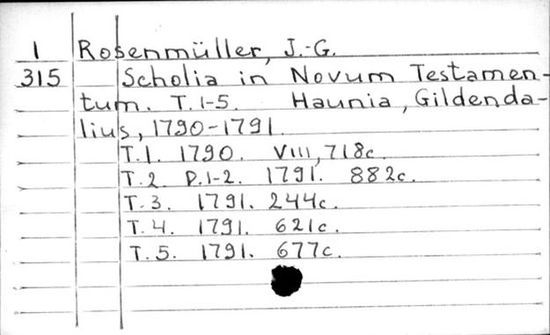 1 Rosenmüller, J.-G.
315 Scholia in Novum Testamen-
tum. T. 1-5. Haunia, Gildenda-
lius, 1790-1791.
T. 1. 1790. VIII, 718c.
T. 2 P. 1-2. 1791. 882c.
T. 3. 1791. 244c.
T. 4. 1791. 621c.
T. 5. 1791. 677c.